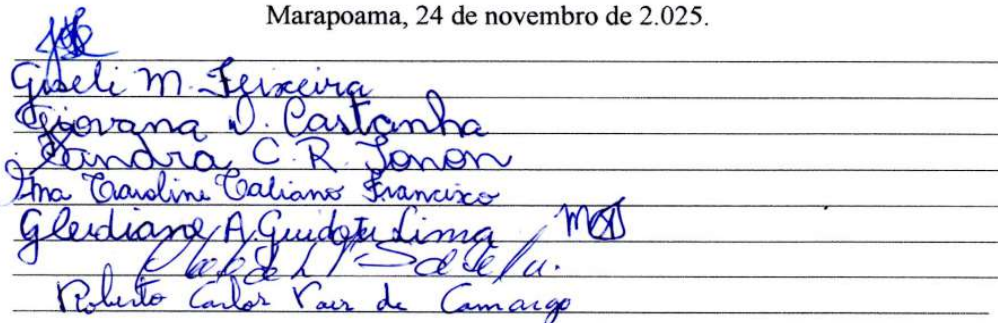 Marapoama, 24 de novembro de 2.025.
Giseli M. Teixeira
Giovana D. Castanha
Sandra C. R. Tonon
Ana Caroline Caliano Francisco
Gleidiane A. Guidoti Lima
Roberto Carlos Vaz de Camargo